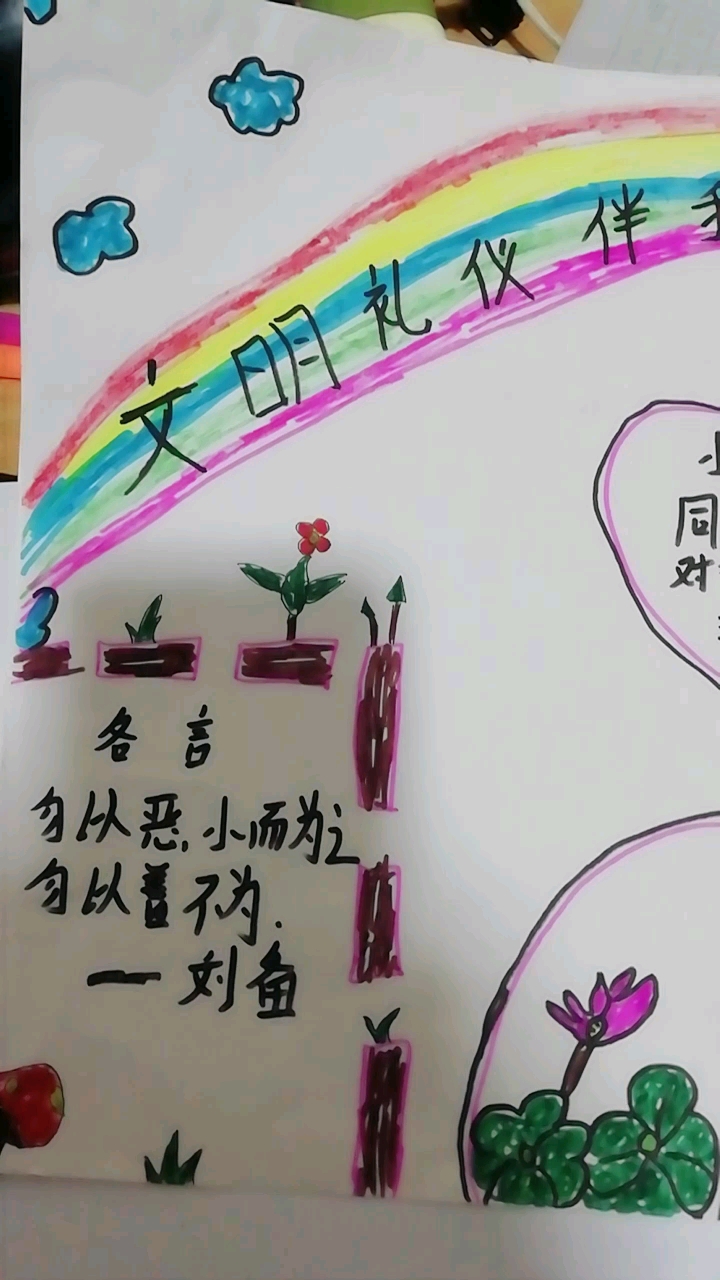 文明礼仪伴我
小
同
对
各言
勿以恶小而为之
勿以善不为.
——刘鱼